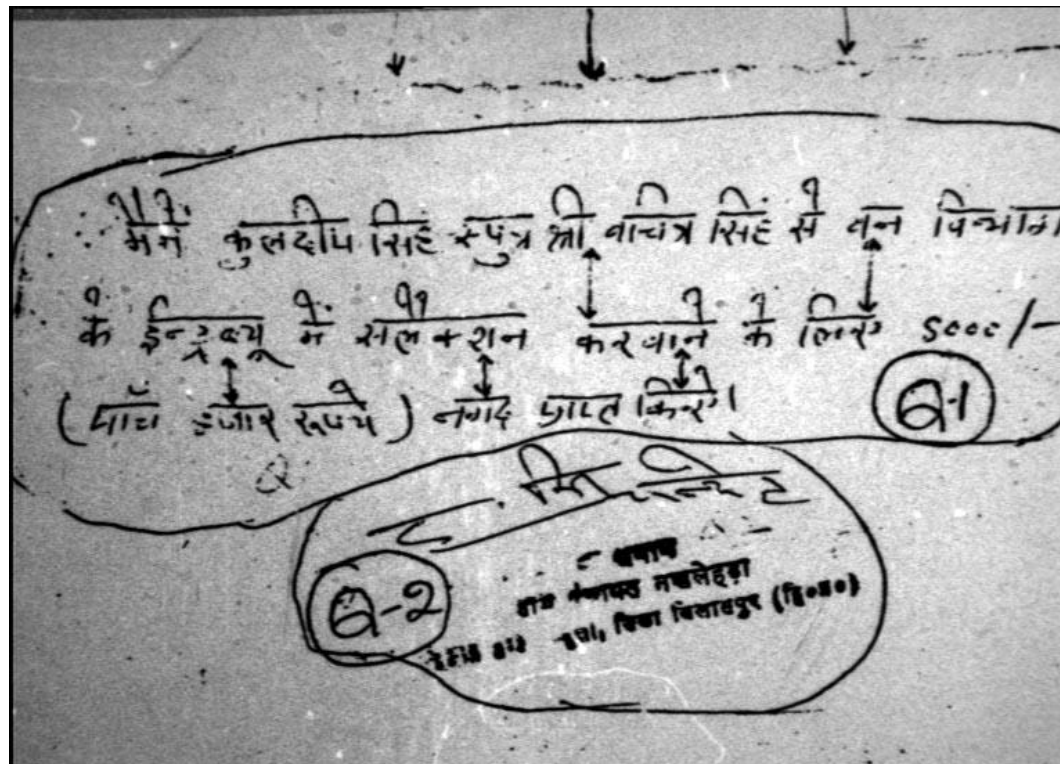 मैनें कुलदीप सिहं स्पुत्र श्री वाचित्र सिहं से वन विभाग
के ईन्ट्रव्यू में सलैक्शन करवाने के लिए 5000/-
(पाँच हजार रूपये) नगद प्राप्त किये।
Q-1
Q-2
प्रधान
ग्राम पंचायत
जिला बिलासपुर (हि०प्र०)